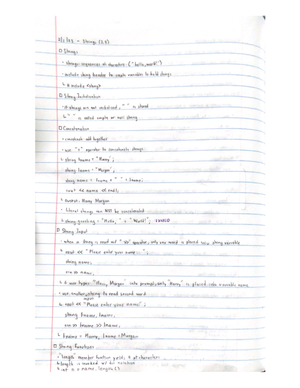 - Strings (2.8)
□ Strings
- strings: sequences of characters: ("hello, world")
- include string header to create variables to hold strings
↳ # include <string>
□ String Initialization
- If strings are not initialized, " " is stored
↳ " " is valid empty or null string
□ Concatenation
- concatenate: add together
- use "+" operator to concatenate strings.
↳ string fname = "Harry";
string lname = "Morgan";
string name = fname + " " + lname;
cout << name << endl;
↳ output: Harry Morgan
- literal strings can NOT be concatenated
↳ string greeting = "Hello, " + "World!";
□ String Input
- when a string is read w/ ">>" operator, only one word is placed into string variable
↳ cout << "Please enter your name: ";
string name;
cin >> name;
↳ if user types "Harry Morgan" into prompt, only "Harry" is placed into variable name
- use another string to read second word
↳ cout << "Please enter your name: ";
string fname, lname;
cin >> fname >> lname;
↳ fname = Harry, lname = Morgan
□ String Functions
- "length" member function yields # of characters
↳ length is invoked w/ dot notation
↳ int n = name.length()